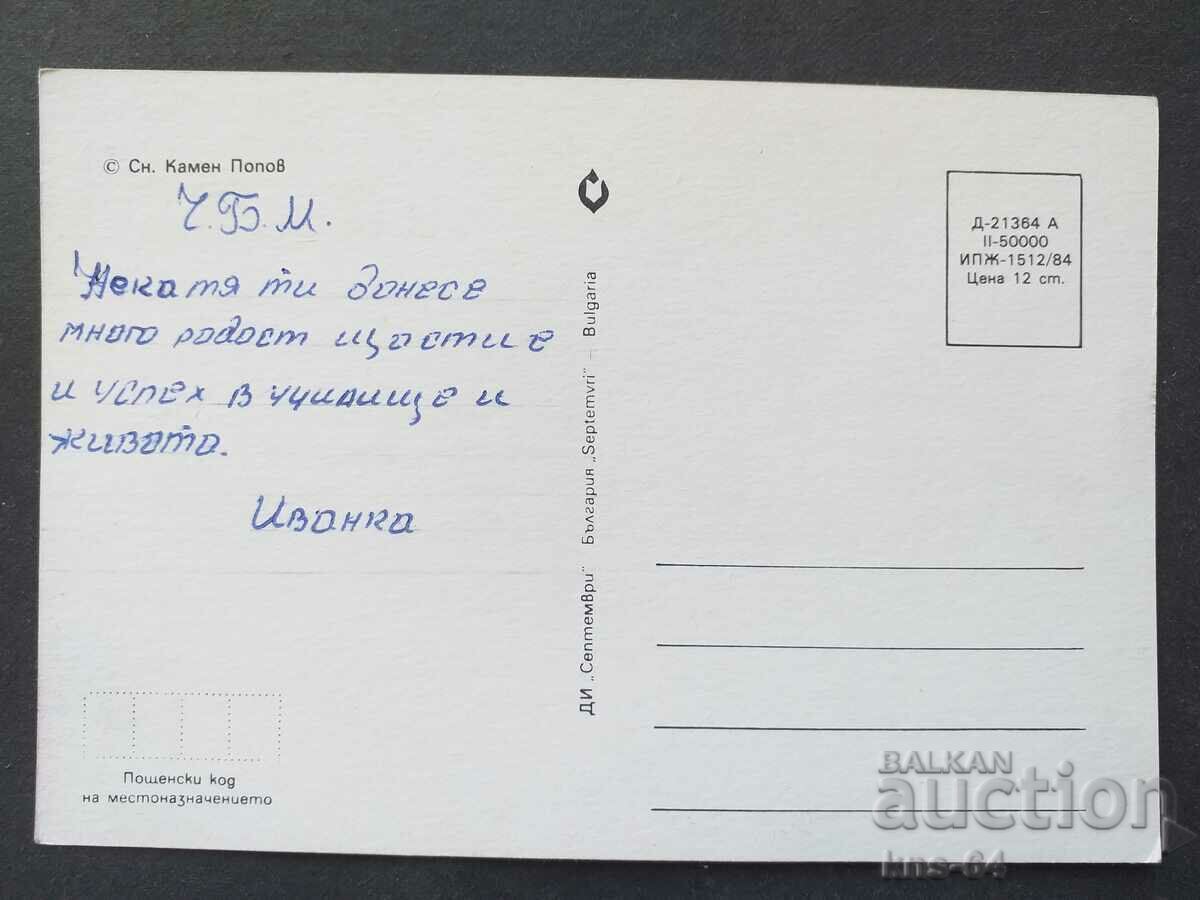 © Сн. Камен Попов
Ч.Б.М.
Нека тя ти донесе
много радост щастие
и успех в училище и
живота.
Иванка
Пощенски код
на местоназначението
ДИ „Септември" България „Septemvri" – Bulgaria
Д-21364 А
II-50000
ИПЖ-1512/84
Цена 12 ст.
BALKAN
auction
kns-64